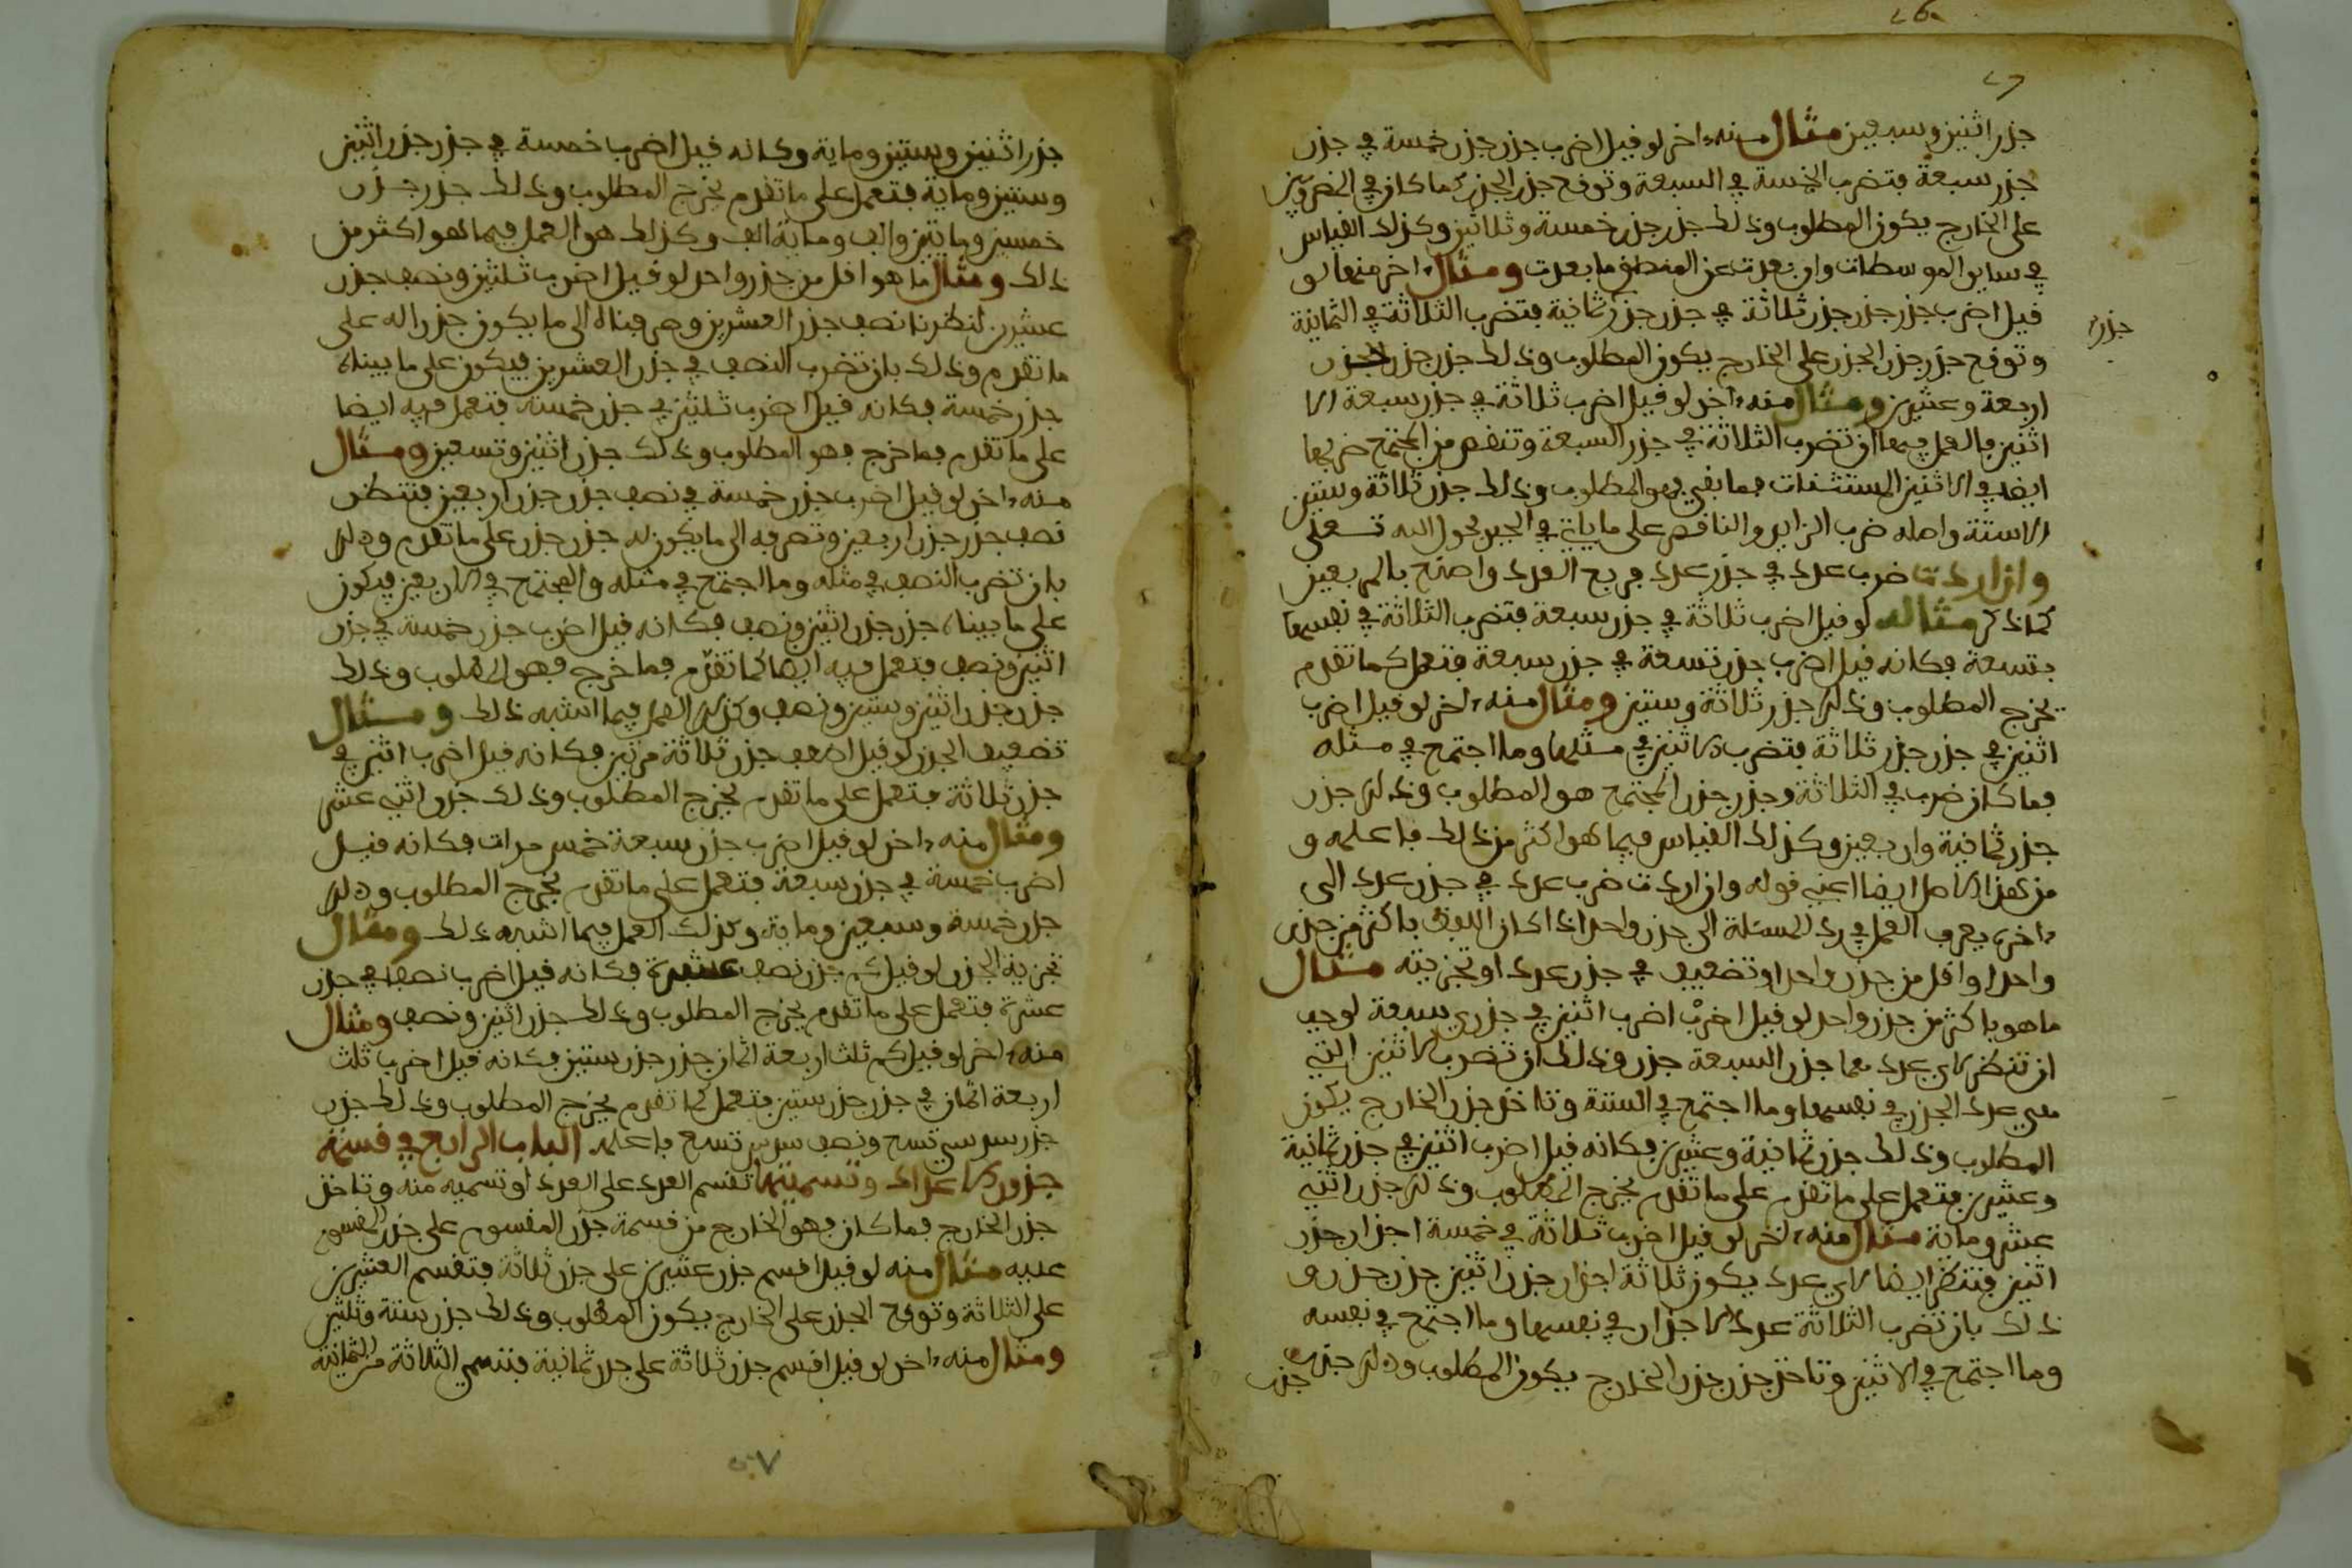 جذر اثنين وسبعين مثال منه ءاخر لو قيل اضرب جذر جذر خمسة في جذر
جذر سبعة فتضرب الخمسة في السبعة وتوقع جذر الجذر كما كان في المضروبين
على الخارج يكون المطلوب وذلك جذر جذر خمسة وثلاثين وكذلك القياس
في ساير الموسطات وان بعدت عن المنطق ما بعدت ومثال ءاخر منها لو
قيل اضرب جذر جذر جذر ثلاثة في جذر جذر ثمانية فتضرب الثلاثة في الثمانية
جذر
وتوقع جذر جذر الجذر على الخارج يكون المطلوب وذلك جذر جذر الجذر
اربعة وعشرين ومثال منه ءاخر لو قيل اضرب ثلاثة في جذر سبعة الا
اثنين فالعمل فيها ان تضرب الثلاثة في جذر السبعة وتنقص من المجتمع ضربها
ايضا في الاثنين المستثنات فما بقي فهو المطلوب وذلك جذر ثلاثة وستين
الا ستة واصله ضرب الزايد والناقص على ما ياتي في الجبر بحول الله تعلى
وان اردت ضرب عدد في جذر عدد فربع العدد واصنع بالمربعين
كما ذكر مثاله لو قيل اضرب ثلاثة في جذر سبعة فتضرب الثلاثة في نفسها
بتسعة فكانه قيل اضرب جذر تسعة في جذر سبعة فتعمل كما تقدم
يخرج المطلوب وذلك جذر ثلاثة وستين ومثال منه ءاخر لو قيل اضرب
اثنين في جذر جذر ثلاثة فتضرب الاثنين في مثلها وما اجتمع في مثله
فما كان ضرب في الثلاثة وجذر جذر المجتمع هو المطلوب وذلك جذر
جذر ثمانية واربعين وكذلك القياس فيما هو اكثر من ذلك فاعلمه و
من هذا الاصل ايضا اعني قوله وان اردت ضرب عدد في جذر عدد الى
ءاخره يعرف العمل في رد المسئلة الى جذر واحد اذا كان اللفظ باكثر من جذر
واحد او اقل من جذر واحد او تضعيف في جذر عدد او تجزيته مثال
ما هو باكثر من جذر واحد لو قيل اضرب اثنين في جذري سبعة لوجب
ان تنظر لاي عدد هما جذر السبعة جذر وذلك ان تضرب الاثنين التي
هي عدد الجذر في نفسها وما اجتمع في الستة وتاخذ جذر الخارج يكون
المطلوب وذلك جذر ثمانية وعشرين فكانه قيل اضرب اثنين في جذر ثمانية
وعشرين فتعمل على ما تقدم على ما تقدم يخرج المطلوب وذلك جذر اثني
عشر ومائة مثال منه ءاخر لو قيل اضرب ثلاثة في خمسة اجذار جذر
اثنين فتنظر ايضا لاي عدد يكون ثلاثة اجذار جذر اثنين جذر جذر و
ذلك بان تضرب الثلاثة عدد الاجذار في نفسها وما اجتمع في نفسه
وما اجتمع في الاثنين وتاخذ جذر جذر الخارج يكون المطلوب وذلك جذر
جذر
جذر اثنين وستين وماية وكانه قيل اضرب خمسة في جذر جذر اثنين
وستين وماية فتعمل على ما تقدم يخرج المطلوب وذلك جذر جذر
خمسين ومايتين والف وماية الف وكذلك هو العمل فيما هو اكثر من
ذلك ومثال ما هو اقل من جذر واحد لو قيل اضرب ثلثين ونصف جذر
عشرين لنظرنا نصف جذر العشرين وصرفناه الى ما يكون جذرا له على
ما تقدم وذلك بان تضرب النصف في جذر العشرين فيكون على ما بيناه
جذر خمسة فكانه قيل اضرب ثلثين في جذر خمسة فتعمل فيه ايضا
على ما تقدم فما خرج فهو المطلوب وذلك جذر اثنين وتسعين ومثال
منه ءاخر لو قيل اضرب جذر خمسة في نصف جذر جذر اربعين فتنظر
نصف جذر جذر اربعين وتصرفه الى ما يكون له جذر جذر على ما تقدم وذلك
بان تضرب النصف في مثله وما اجتمع في مثله والمجتمع في الاربعين فيكون
على ما بيناه جذر جذر اثنين ونصف فكانه قيل اضرب جذر خمسة في جذر
اثنين ونصف فتعمل فيه ايضا كما تقدم فما خرج فهو المطلوب وذلك
جذر جذر اثنين وستين ونصف وكذلك العمل فيما اشبه ذلك ومثال
تضعيف الجذر لو قيل اضعف جذر ثلاثة مرتين فكانه قيل اضرب اثنين في
جذر ثلاثة فتعمل على ما تقدم يخرج المطلوب وذلك جذر اثني عشر
ومثال منه ءاخر لو قيل اضرب جذر سبعة خمس مرات فكانه قيل
اضرب خمسة في جذر سبعة فتعمل على ما تقدم يخرج المطلوب وذلك
جذر خمسة وسبعين وماية وكذلك العمل فيما اشبه ذلك ومثال
تجزية الجذر لو قيل كم جذر نصف عشرة فكانه قيل اضرب نصفا في جذر
عشرة فتعمل على ما تقدم يخرج المطلوب وذلك جذر اثنين ونصف ومثال
منه ءاخر لو قيل كم ثلث اربعة اثمان جذر جذر ستين فكانه قيل اضرب ثلث
اربعة اثمان في جذر جذر ستين فتعمل كما تقدم يخرج المطلوب وذلك جذر
جذر سدسي تسع ونصف سدس تسع فاعلمه الباب الرابع في قسمة
جذور الاعداد وتسميتها تقسم العدد على العدد او تسميه منه وتاخذ
جذر الخارج فما كان فهو الخارج من قسمة جذر المقسوم على جذر المقسوم
عليه مثال منه لو قيل اقسم جذر عشرين على جذر ثلاثة فتقسم العشرين
على الثلاثة وتوقع الجذر على الخارج يكون المطلوب وذلك جذر ستة وثلثين
ومثال منه ءاخر لو قيل اقسم جذر ثلاثة على جذر ثمانية فتسمي الثلاثة من الثمانية
٥٧